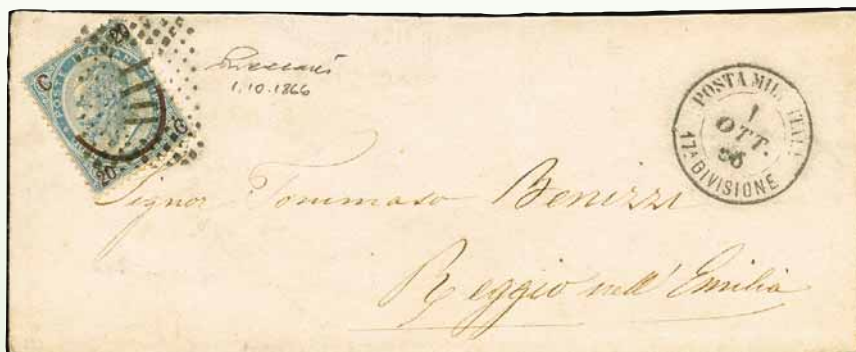 C
20
C
20
POSTE ITALIANE
1.10.1866
POSTA MIL. ITAL.
1
OTT.
66
17A DIVISIONE
Signor Tommaso Benizzi
Reggio nell'Emilia